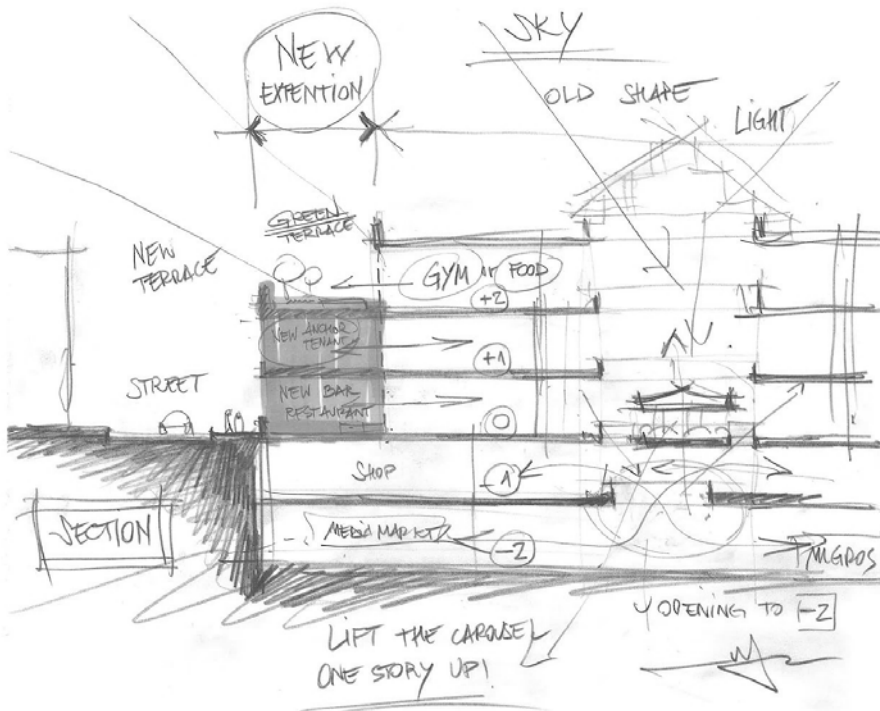 NEW
EXTENTION
SKY
OLD SHAPE
LIGHT
GREEN
TERRACE
NEW
TERRACE
GYM or FOOD
+2
NEW ANCHOR
TENANT
+1
STREET
NEW BAR
RESTAURANT
0
SHOP
-1
SECTION
MEDIA MARKT
-2
MIGROS
OPENING TO -2
LIFT THE CAROUSEL
ONE STORY UP!